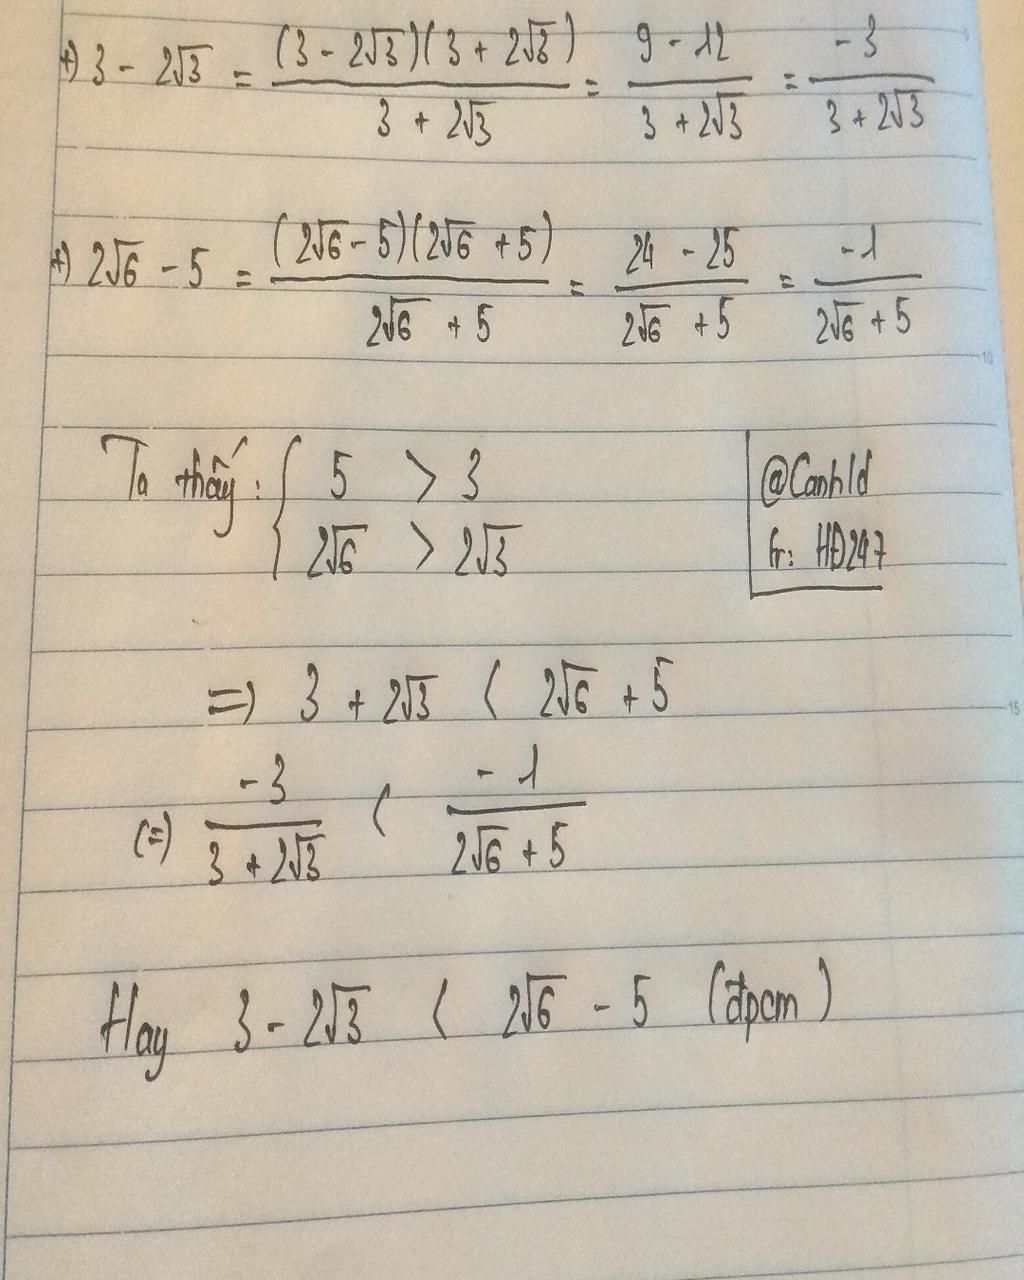 +) 3 - 2√3 = (3 - 2√3)(3 + 2√3) / 3 + 2√3 = 9 - 12 / 3 + 2√3 = -3 / 3 + 2√3
+) 2√6 - 5 = (2√6 - 5)(2√6 + 5) / 2√6 + 5 = 24 - 25 / 2√6 + 5 = -1 / 2√6 + 5
Ta thấy: { 5 > 3
2√6 > 2√3
@Canhld
fr: HĐ247
=) 3 + 2√3 < 2√6 + 5
(=) -3 / 3 + 2√3 < -1 / 2√6 + 5
Hay 3 - 2√3 < 2√6 - 5 (đpcm)
10
15